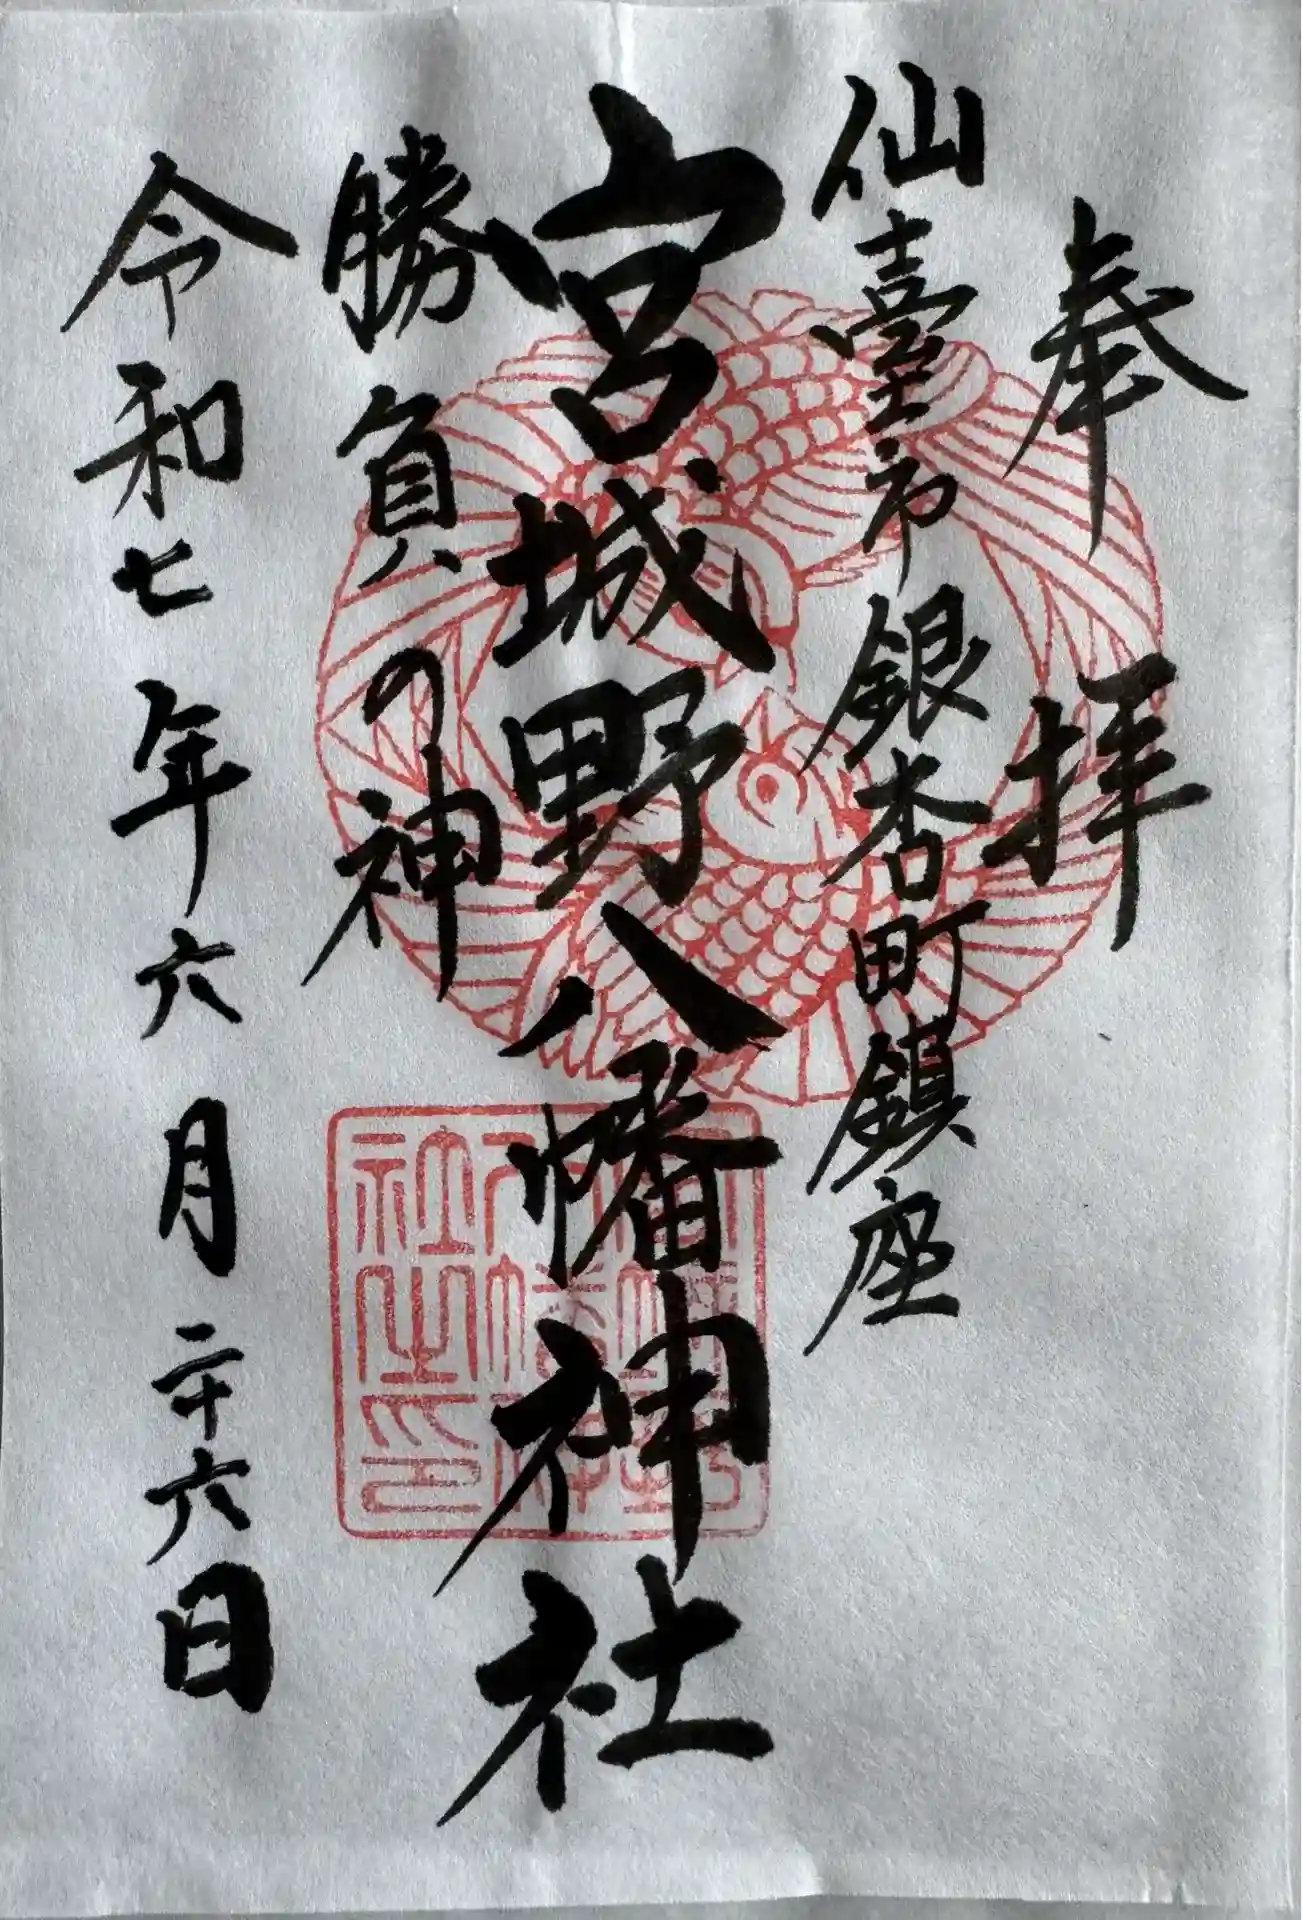 奉拝
仙臺市銀杏町鎮座
宮城野八幡神社
勝負の神
令和七年六月二十六日